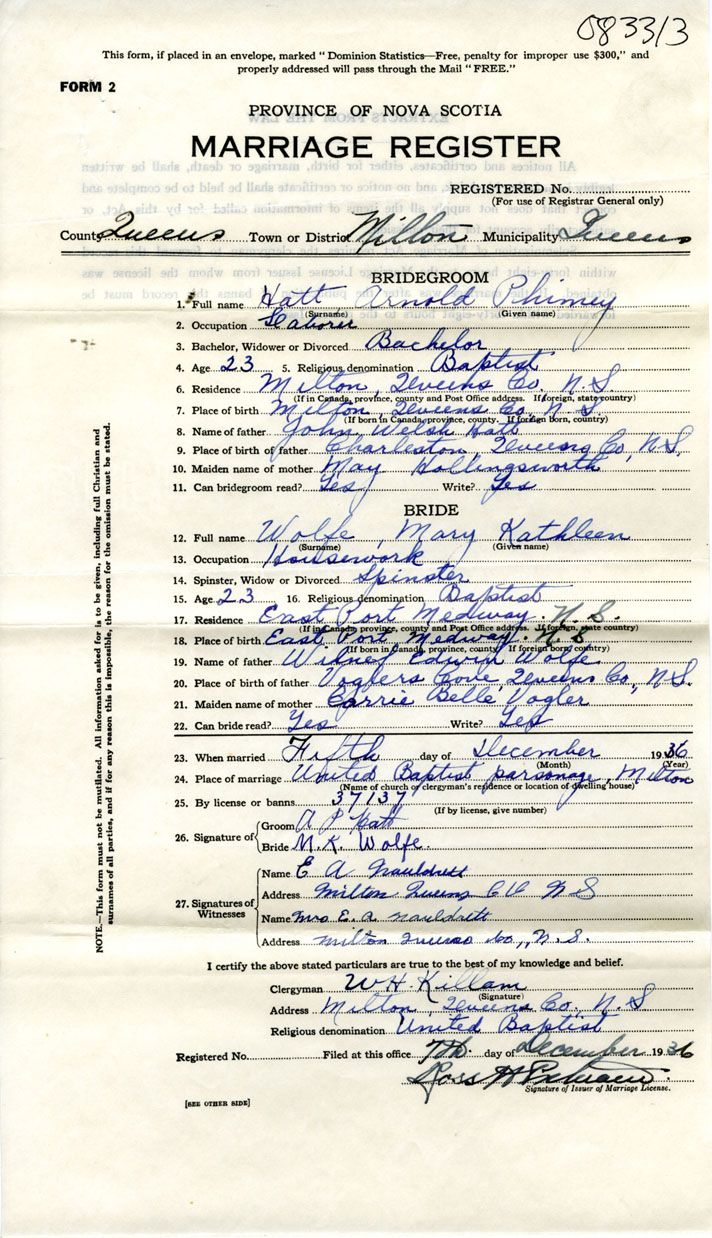 083313
This form, if placed in an envelope, marked "Dominion Statistics—Free, penalty for improper use $300," and
properly addressed will pass through the Mail "FREE."
FORM 2
PROVINCE OF NOVA SCOTIA
MARRIAGE REGISTER
REGISTERED No.
(For use of Registrar General only)
County Queens Town or District Milton Municipality Queens
BRIDEGROOM
1. Full name Hatt Arnold Phinney
(Surname) (Given name)
2. Occupation Laborer
3. Bachelor, Widower or Divorced Bachelor
4. Age 23 5. Religious denomination Baptist
6. Residence Milton, Queens Co. N.S
(If in Canada, province, county and Post Office address. If foreign, state country)
7. Place of birth Milton, Queens Co. N.S.
(If born in Canada, province, county. If foreign born, country)
8. Name of father John Welsh Hatt
9. Place of birth of father Charleston, Queens Co, N.S.
10. Maiden name of mother May Hollingsworth
11. Can bridegroom read? Yes Write? Yes
BRIDE
12. Full name Wolfe, Mary Kathleen
(Surname) (Given name)
13. Occupation Housework
14. Spinster, Widow or Divorced Spinster
15. Age 23 16. Religious denomination Baptist
17. Residence East Port Medway. N.S.
(If in Canada, province, county and Post Office address. If foreign, state country)
18. Place of birth East Port Medway. N.S
(If born in Canada, province, county. If foreign born, country)
19. Name of father Edwin Wolfe
20. Place of birth of father Voglers Cove, Queens Co., N.S.
21. Maiden name of mother Carrie Belle Vogler
22. Can bride read? Yes Write? Yes
23. When married Fifth day of December 1936
(Month) (Year)
24. Place of marriage United Baptist parsonage, Milton
(Name of church or clergyman's residence or location of dwelling house)
25. By license or banns 37137
(If by license, give number)
26. Signature of
Groom A P Hatt
Bride M. K. Wolfe.
27. Signatures of Witnesses
Name E A
Address Milton Queens N S
Name Mrs E. A
Address Milton Queens Co., N. S.
I certify the above stated particulars are true to the best of my knowledge and belief.
Clergyman W H. Killam
(Signature)
Address Milton, Queens Co. N. S
Religious denomination United Baptist
Registered No. Filed at this office 7th day of December 1936
Ross H
Signature of Issuer of Marriage License.
[SEE OTHER SIDE]
NOTE.—This form must not be mutilated. All information asked for is to be given, including full Christian and
surnames of all parties, and if for any reason this is impossible, the reason for the omission must be stated.